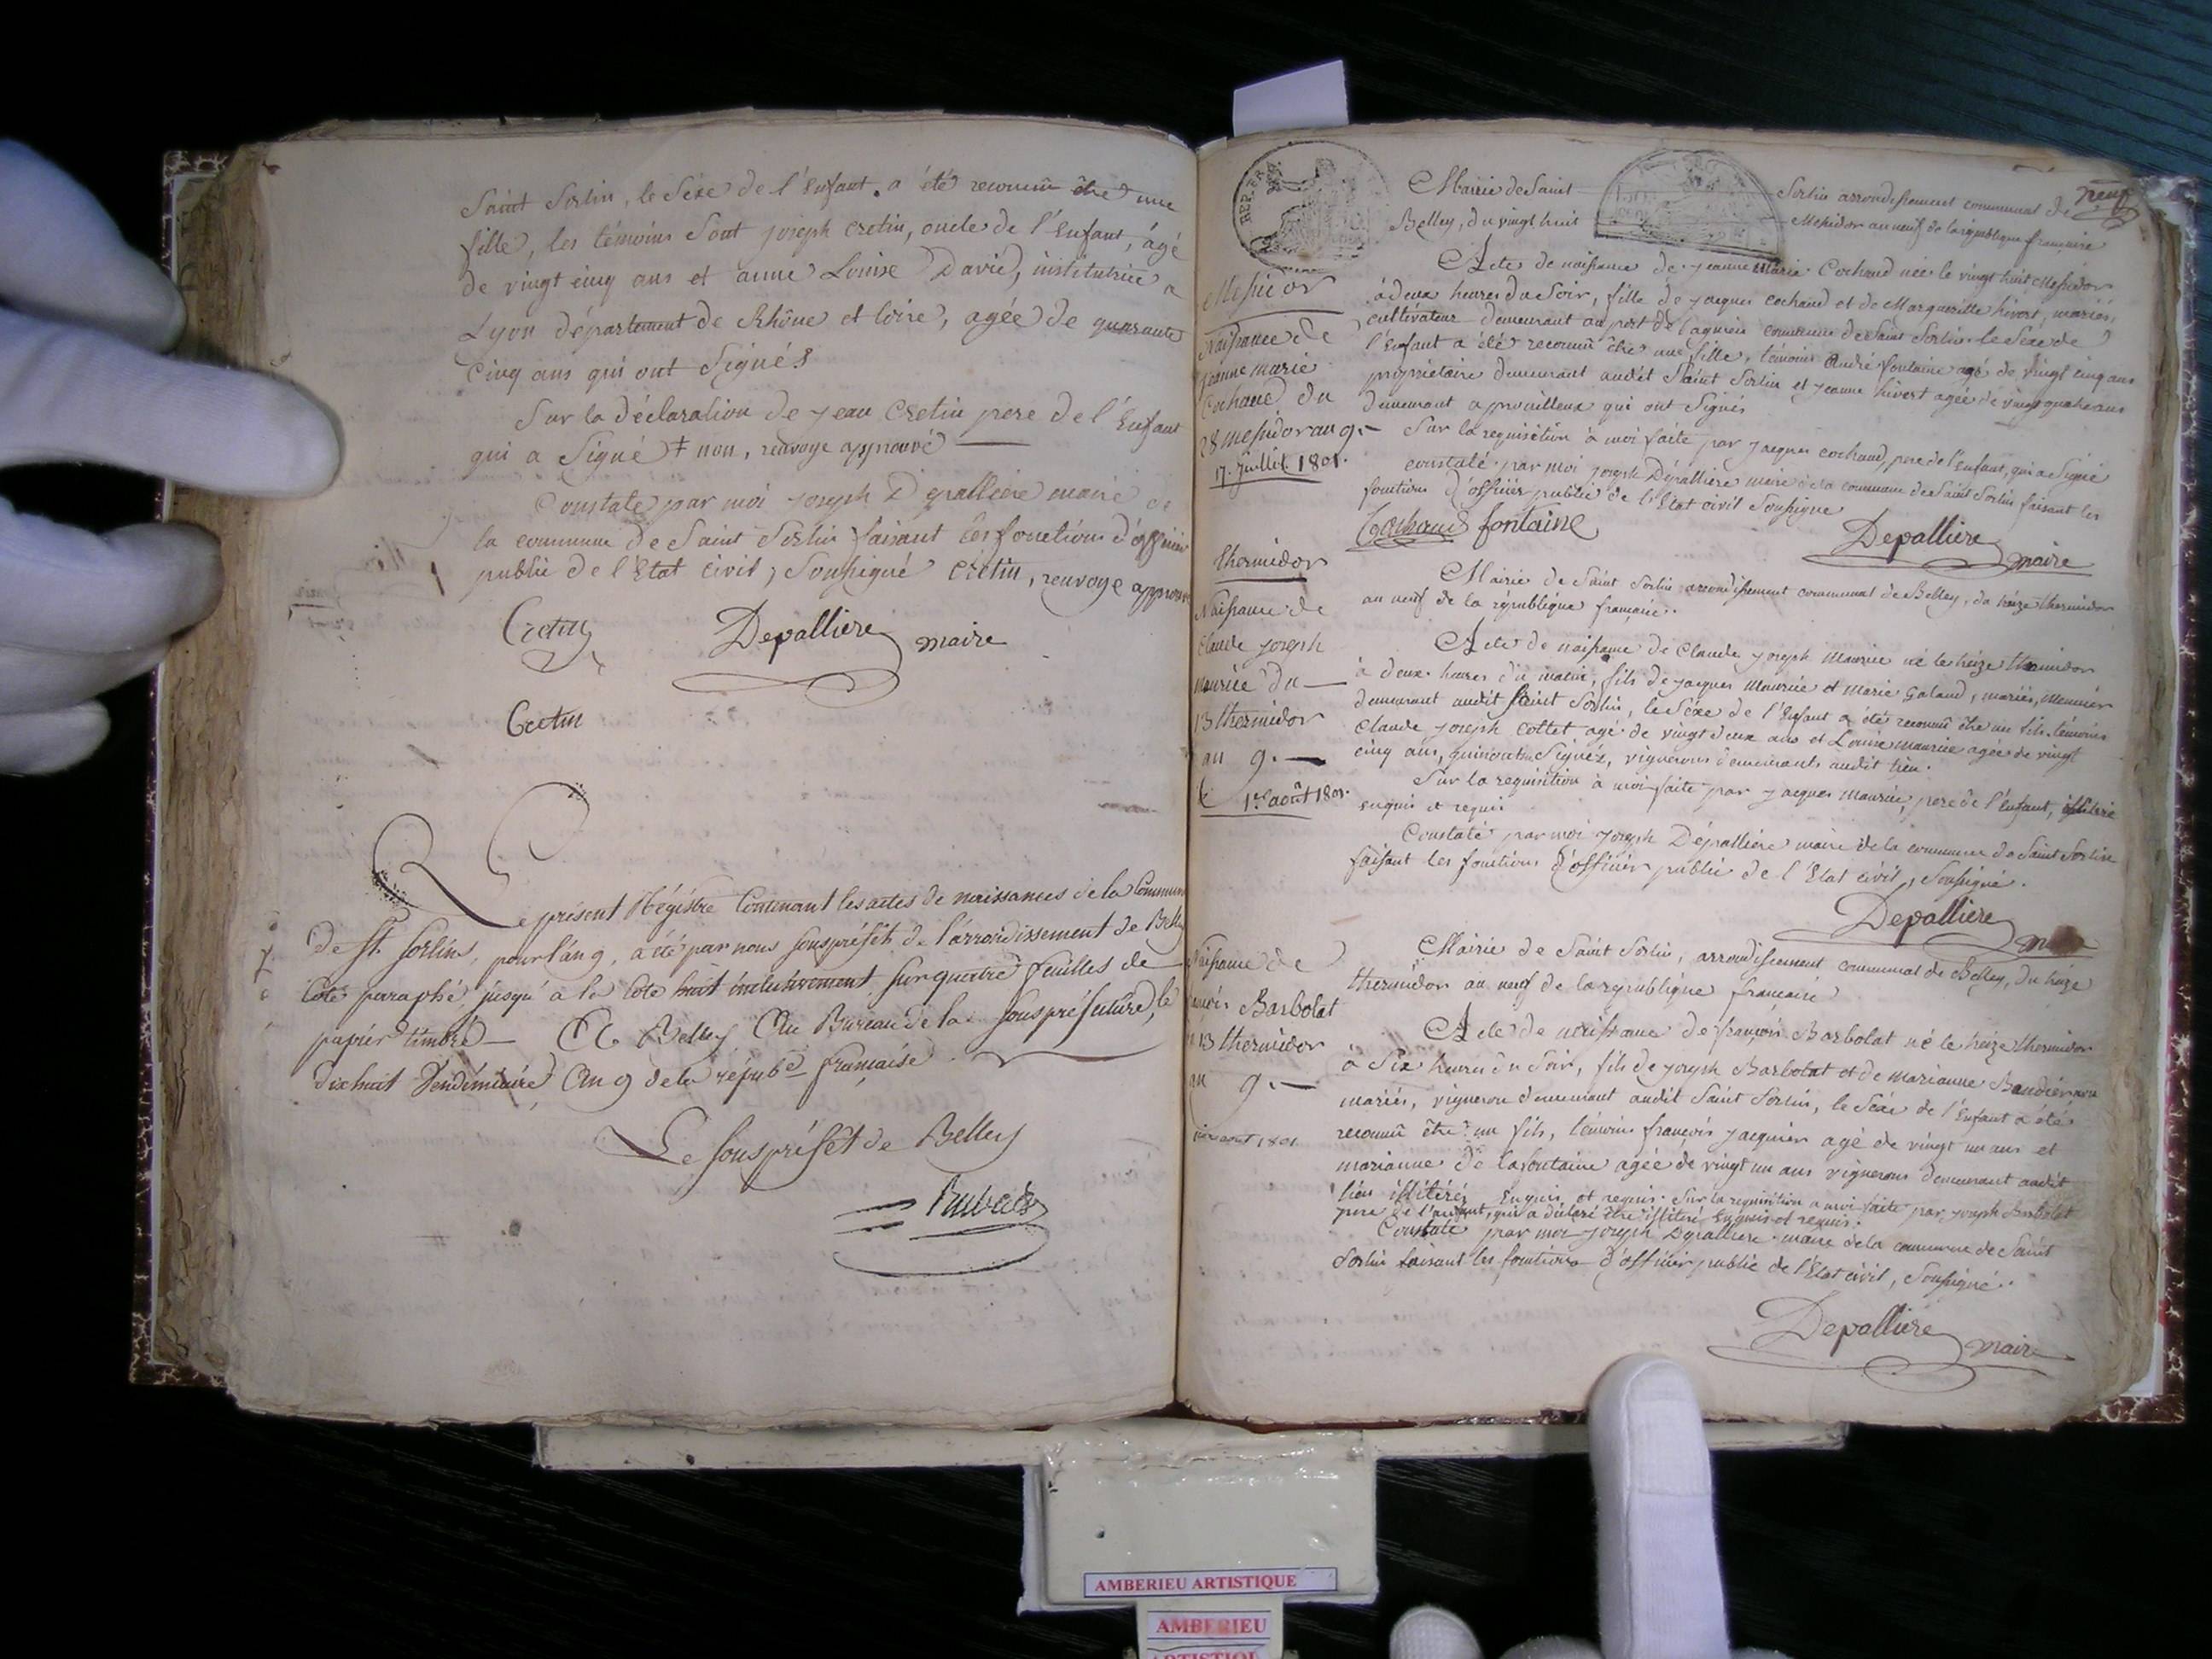 Saint Sorlin, le Séxe de l'Enfant a été reconnû être une
fille, les témoins Sont joseph cretin, oncle de l'Enfant, âgé
de vingt cinq ans et anne Louise David, institutrice a
Lyon département de Rhône et loire, agée de quarante
Cinq ans qui ont Signés
Sur la déclaration de jean Cretin pere de l'Enfant
qui a Signé ‡ non, renvoye approuvé
Constaté par moi joseph Depalliere maire de
la commune de Saint Sorlin faisant les fonctions d'officier
public de l'Etat civil, Soussigné Crétin, renvoye approuvé
Cretin Depalliere maire
Cretin
Le présent Régistre Contenant les actes de naissances de la Commune
de St. Sorlin, pour l'an 9, a été par nous Souspréfêt de l'arrondissement de Belley
Coté paraphé jusqu'à la Cote huit inclusivement Sur quatre feuilles de
papier timbré A Belley Au Bureau de la Souspréfecture, le
dixhuit Vendémiaire An 9 de la répube. française
Le Souspréfêt de Belley
REP. FR
neuf
Mairie de Saint Sorlin arrondissement communal de
Belley, du vingt huit Messidor an neuf de la république française
Messidor
Naissance de
jeanne marie
Cochand du
28 messidor an 9.
17. juillet 1801.
Acte de naissance de jeanne Marie Cochand née le vingt huit Messidor
à deux heures du Soir, fille de jacques cochand et de Margueritte hivert, mariés,
cultivateur demeurant au port de lagnieu commune de Saint Sorlin. le Séxe de
l'Enfant a été reconnû être une fille, témoins André fontaine agé de vingt cinq ans
propriétaire demeurant audit Saint Sorlin et jeanne hivert agée de vingt quatre ans
demeurant a prouilleux qui ont Signés
Sur la requisition à moi faite par jacques cochand, pere de l'enfant, qui a Signé
constaté par moi joseph Dépalliere maire de la commune de Saint Sorlin faisant les
fonctions d'officier public de l'Etat civil Soussigné
Cochand fontaine Depalliere maire
thermidor
Naissance de
Claude joseph
maurice du
13 thermidor
an 9.
1er. août 1801.
Mairie de Saint Sorlin arrondissement communal de Belley, du treize thermidor
an neuf de la république française.
Acte de naissance de Claude joseph Maurice né le treize thermidor
à deux heures du matin, fils de jacques Maurice et Marie Galand, mariés, Meunier
demeurant audit Saint Sorlin, le Séxe de l'Enfant a été reconnû être un fils. témoins
Claude joseph Cottet agé de vingt deux ans et Louise maurice agée de vingt
cinq ans, qui n'ont Signés, vignerons demeurants audit lieu.
Sur la requisition à moi faite par jacques Maurice, pere de l'Enfant, illitéré
enquis et requis
Constaté par moi joseph Dépalliere maire de la commune de Saint Sorlin
faisant les fonctions d'officier public de l'Etat civil, Soussigné.
Depalliere
Naissance de
Barbolat
13 thermidor
an 9.
août 1801
Mairie de Saint Sorlin, arrondissement communal de Belley, du treize
thermidor an neuf de la république française
Acte de naissance de françois Barbolat né le treize thermidor
à Six heures du Soir, fils de joseph Barbolat et de marianne
mariés, vigneron demeurant audit Saint Sorlin, le Séxe de l'Enfant a été
reconnû être un fils, témoins françois jacquier agé de vingt un ans et
marianne de lafontaine agée de vingt un ans vignerons demeurant audit
lieu illitérés enquis et requis. Sur la requisition a moi faite par joseph Barbolat
pere de l'enfant, qui a déclaré être illitéré enquis et requis.
Constaté par moi joseph Dépalliere maire de la commune de Saint
Sorlin faisant les fonctions d'officier public de l'Etat civil, Soussigné.
Depalliere maire
AMBERIEU ARTISTIQUE
AMBERIEU
ARTISTIQUE